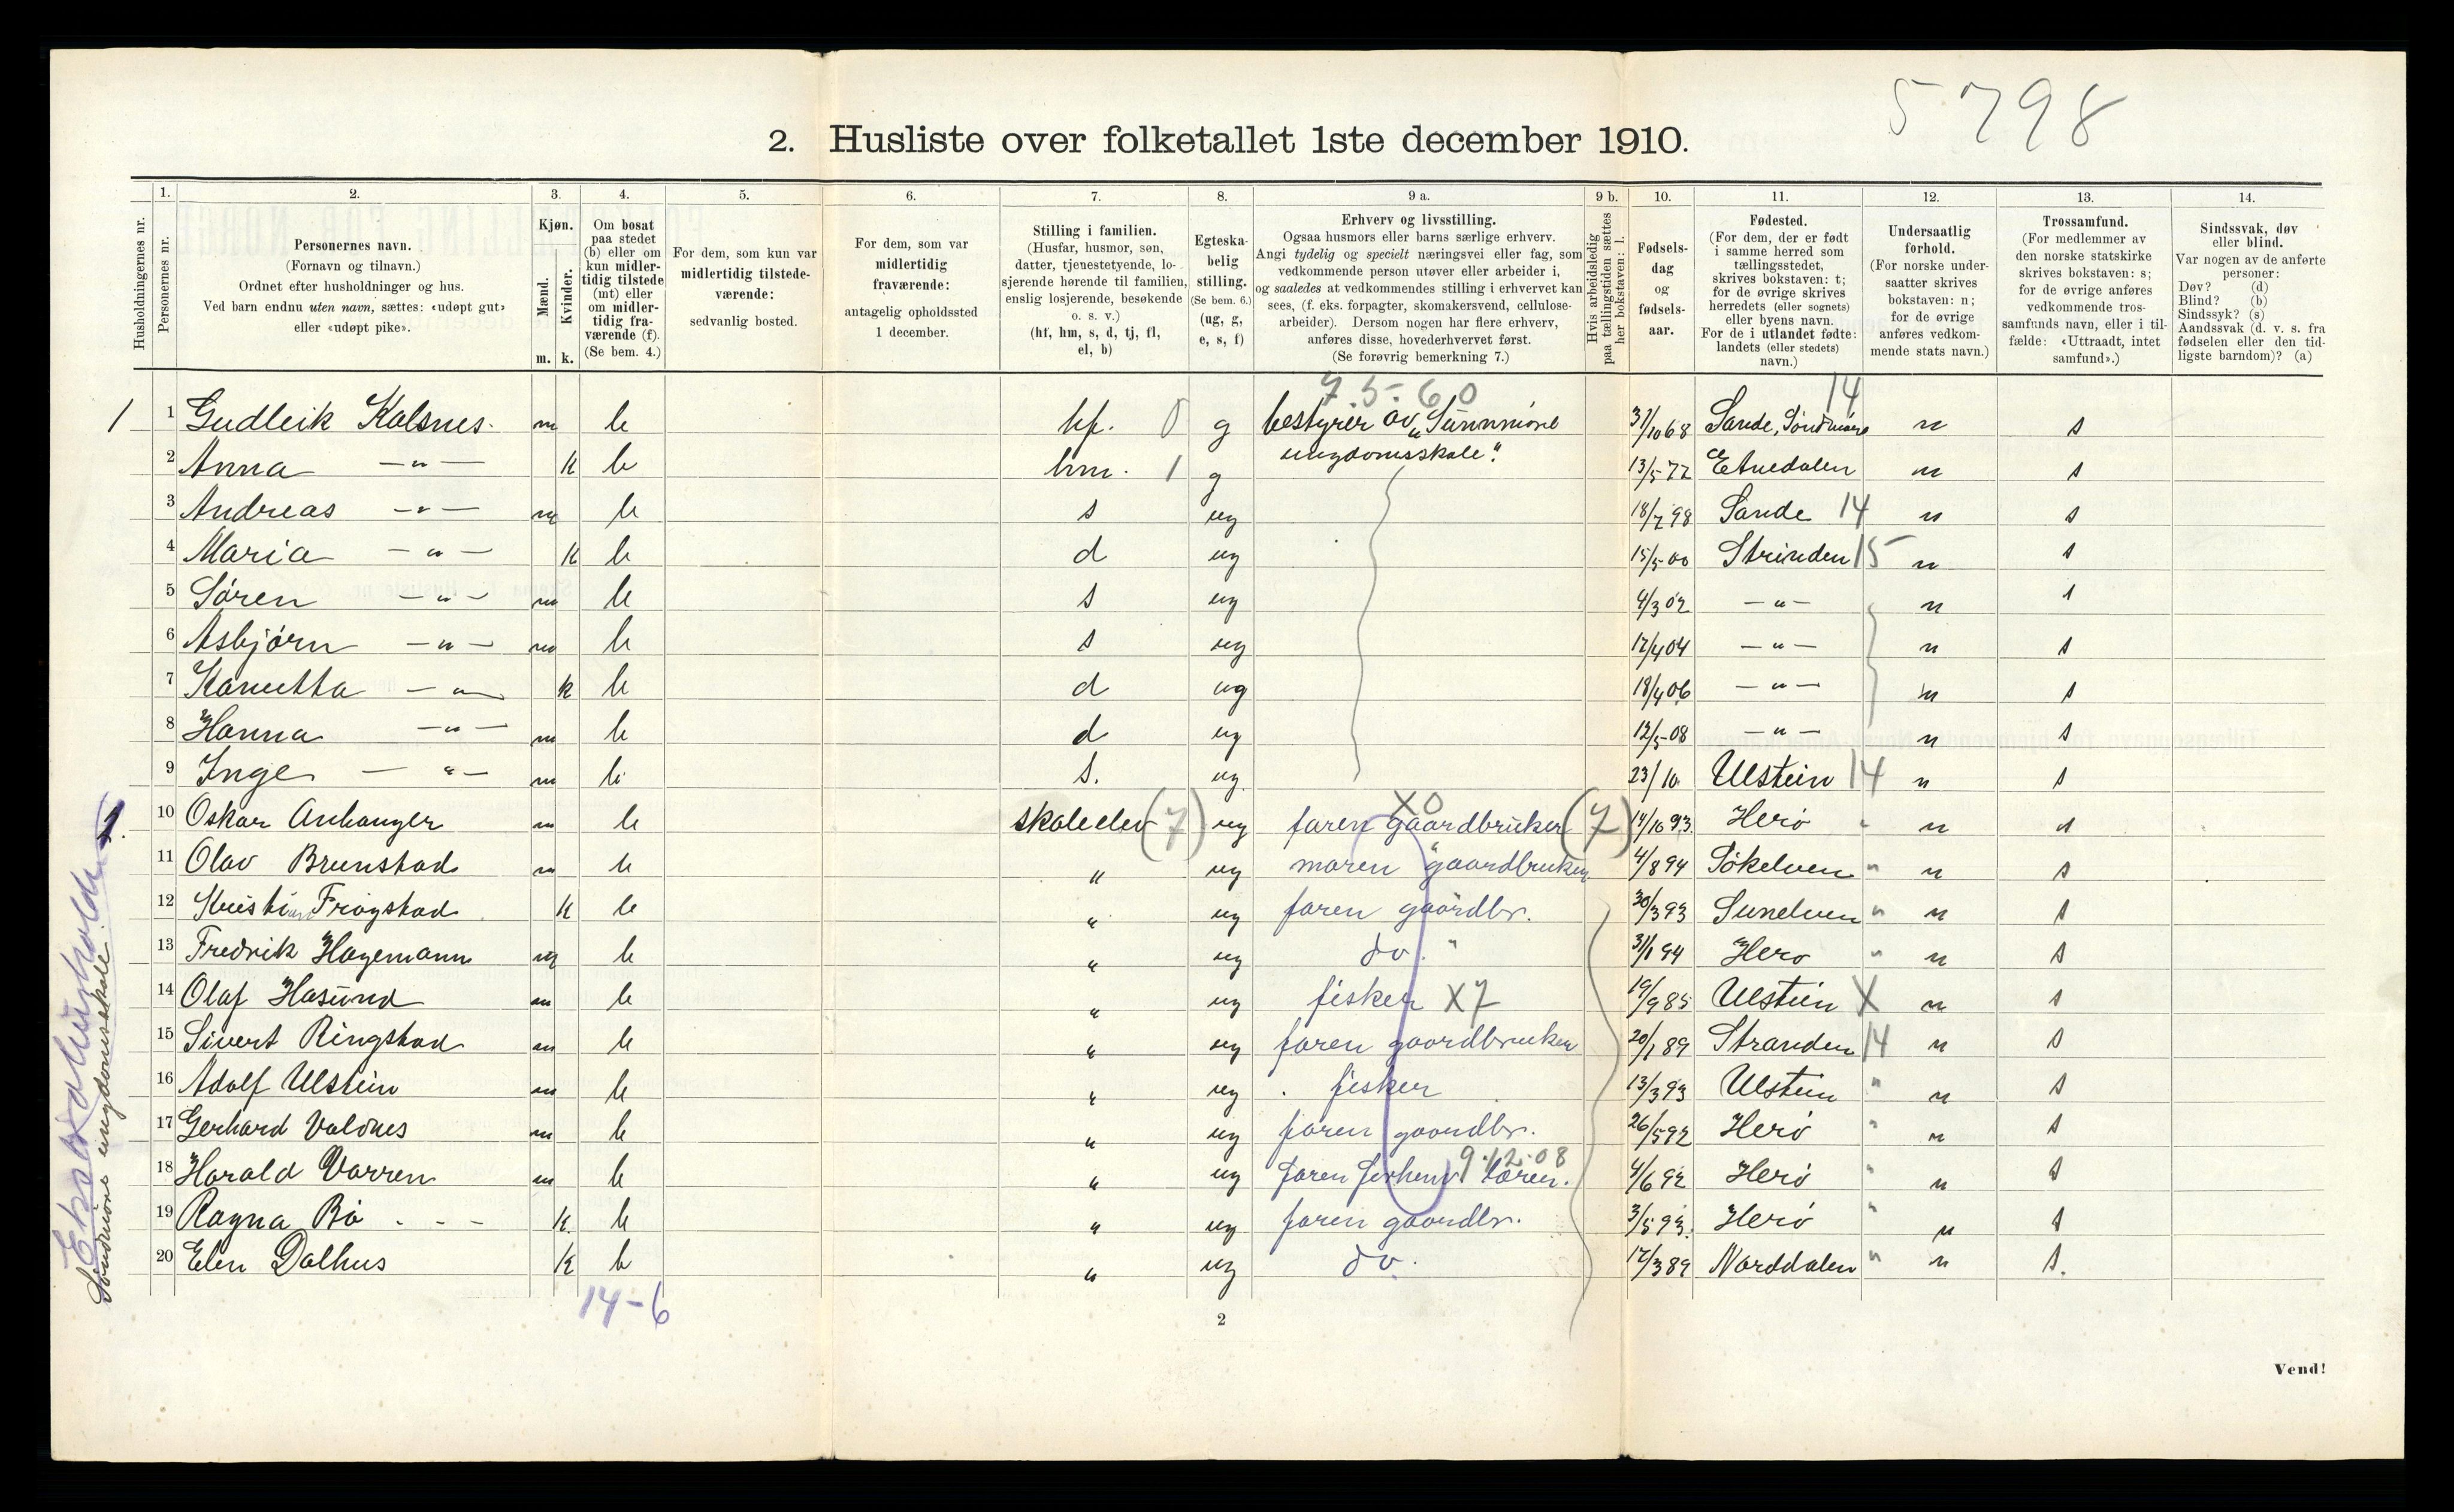 5798
2. Husliste over folketallet 1ste december 1910.
Husholdningernes nr.
Personernes nr.
1.
2.
Personernes navn.
(Fornavn og tilnavn.)
Ordnet efter husholdninger og hus.
Ved barn endnu uten navn, sættes: «udøpt gut»
eller «udøpt pike».
3.
Kjøn.
Mænd.
Kvinder.
m. k.
4.
Om bosat
paa stedet
(b) eller om
kun midler-
tidig tilstede
(mt) eller
om midler-
tidig fra-
værende (f).
(Se bem. 4.)
5.
For dem, som kun var
midlertidig tilstede-
værende:
sedvanlig bosted.
6.
For dem, som var
midlertidig
fraværende:
antagelig opholdssted
1 december.
7.
Stilling i familien.
(Husfar, husmor, søn,
datter, tjenestetyende, lo-
sjerende hørende til familien,
enslig losjerende, besøkende
o. s. v.)
(hf, hm, s, d, tj, fl,
el, b)
8.
Egteska-
belig
stilling.
(Se bem. 6.)
(ug, g,
e, s, f)
9 a.
Erhverv og livsstilling.
Ogsaa husmors eller barns særlige erhverv.
Angi tydelig og specielt næringsvei eller fag, som
vedkommende person utøver eller arbeider i,
og saaledes at vedkommendes stilling i erhvervet kan
sees, (f. eks. forpagter, skomakersvend, cellulose-
arbeider). Dersom nogen har flere erhverv,
anføres disse, hovederhvervet først.
(Se forøvrig bemerkning 7.)
9 b.
Hvis arbeidsledig
paa tællingstiden sættes
her bokstaven: l.
10.
Fødsels-
dag
og
fødsels-
aar.
11.
Fødested.
(For dem, der er født
i samme herred som
tællingsstedet,
skrives bokstaven: t;
for de øvrige skrives
herredets (eller sognets)
eller byens navn.
For de i utlandet fødte:
landets (eller stedets)
navn.)
12.
Undersaatlig
forhold.
(For norske under-
saatter skrives
bokstaven: n;
for de øvrige
anføres vedkom-
mende stats navn.)
13.
Trossamfund.
(For medlemmer av
den norske statskirke
skrives bokstaven: s;
for de øvrige anføres
vedkommende tros-
samfunds navn, eller i til-
fælde: «Uttraadt, intet
samfund».)
14.
Sindssvak, døv
eller blind.
Var nogen av de anførte
personer:
Døv? (d)
Blind? (b)
Sindssyk? (s)
Aandssvak (d. v. s. fra
fødselen eller den tid-
ligste barndom)? (a)
7.5-60 14
1 1 Gudleik Kalsnes m b hf. 0 g bestyrer av „Sunnmöre 31/10 68 Sande, Söndmöre n s
2 Anna —"— k b hm. 1 g ungdomsskole". 13/5 72 Etnedalen n s
3 Andreas —"— m b s ug 18/7 98 Sande 14 n s
4 Maria —"— k b d ug 15/5 00 Strinden 15 n s
5 Sören —"— m b s ug 4/3 02 —"— n s
6 Asbjörn —"— m b s ug 12/4 04 —"— n s
7 Kanutta —"— k b d ug 18/4 06 —"— n s
8 Hanna —"— m b d ug 12/5 08 —"— n s
9 Inge —"— m b s. ug 23/10 Ulstein 14 n s
X0
10 Oskar Anhanger m b skoleelev (7) ug faren gaardbruker (7) 14/10 93 Herö " n s
11 Olav Brunstad m b " ug moren gaardbruker 4/8 94 Sökelven " n s
12 Kristi Frøystad k b " ug faren gaardbr. 30/3 93 Sunelven " n s
13 Fredrik Hagemann m b " ug do. " 31/1 94 Herö " n s
14 Olaf Hasund m b " ug fisker X7 19/9 85 Ulstein X n s
15 Sivert Ringstad m b " ug faren gaardbruker 20/1 89 Stranden 14 n s
16 Adolf Ulstein m b " ug . fisker 13/3 93 Ulstein " n s
17 Gerhard Valdnes m b " ug faren gaardbr. 26/5 92 Herö " n s
9.12.08
18 Harald Varren m b " ug faren 4/6 92 Herö " n s
19 Ragna Bö k b " ug faren gaardbr. 3/5 93. Herö " n s
20 Elen Dalhus k b " ug do. 17/3 89 Norddalen " n s.
Söndmöre ungdomsskole.
14-6
2
Vend!